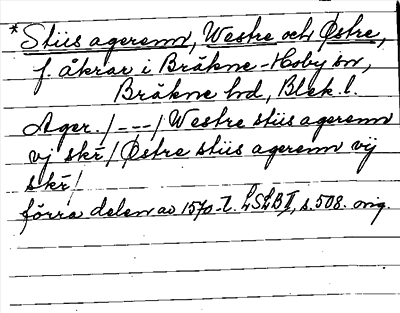 * Stiis agerenn, Westre och Østre,
f. åkrar i Bräkne-Hoby sn,
Bräkne hd, Blek. l.
Ager. / --- / Westre stiis agerenn
vj skr̄ / Østre stiis agerenn vij
skr̄ /
förra delen av 1570-t. LSLB II, s. 508. orig.